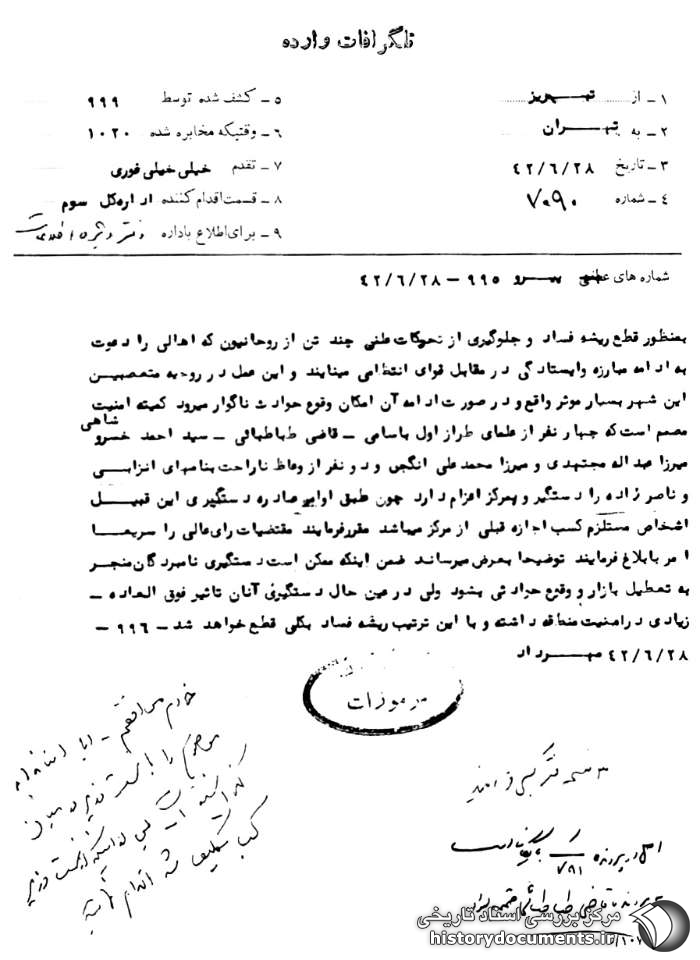 تلگرافات وارده
۱ـ از تهـــریز
۲ـ به تهـــران
۳ـ تاریخ ۴۲/۶/۲۸
۴ـ شماره ۷۰۹۰
۵ـ کشف شده توسط ۹۹۹
۶ـ وقتیکه مخابره شده ۱۰۲۰
۷ـ تقدم خیلی خیلی فوری
۸ـ قسمت اقدام کننده اداره کل سوم
۹ـ برای اطلاع باداره دفتر ویژه اطلاعات
شماره های عطفی پیـــرو ۹۹۵ – ۴۲/۶/۲۸
بمنظور قطع ریشه فساد و جلوگیری از تحریکات علنی چند تن از روحانیون که اهالی را دعوت
به ادامه مبارزه وایستادگی در مقابل قوای انتظامی مینمایند و این عمل در روحیه متعصبین
این شهر بسیار موثر واقع و در صورت ادامه آن امکان وقوع حوادث ناگوار میرود کمیته امنیت
مصمم است که چهار نفر از علمای طراز اول باسامی ــ قاضی طباطبائی ــ سید احمد خسرو شاهی
میرزا عبداله مجتهدی و میرزا محمدعلی انگجی و دو نفر از وعاظ ناراحت بنامهای انزابـــی
و ناصرزاده را دستگیر و بمرکز اعزام دارد چون طبق اوامر صادره دستگیری این قبیـــل
اشخاص مستلزم کسب اجازه قبلی از مرکز میباشد مقررفرمایند مقتضیات رای عالی را سریعـــا
امر بابلاغ فرمایند توضیحا بعرض میرساند ضمن اینکه ممکن است دستگیری نامبردگان منجر
به تعطیل بازار و وقوع حوادثی بشود ولی در عین حال دستگیری آنان تاثیر فوق العاده ــ
زیادی در امنیت منطقه داشته و با این ترتیب ریشه فساد بکلی قطع خواهد شد – ۹۹۶ –
۴۲/۶/۲۸ مهـــرداد
مرموزات
خودم موافقم ــ
کسب تکلیف شد اقدام
۳ نسخه فتوکپی
در پرونده ۷۹۱
پرونده قاضی طباطبائی ضمیمه
مرکز بررسی اسناد تاریخی
historydocuments.ir